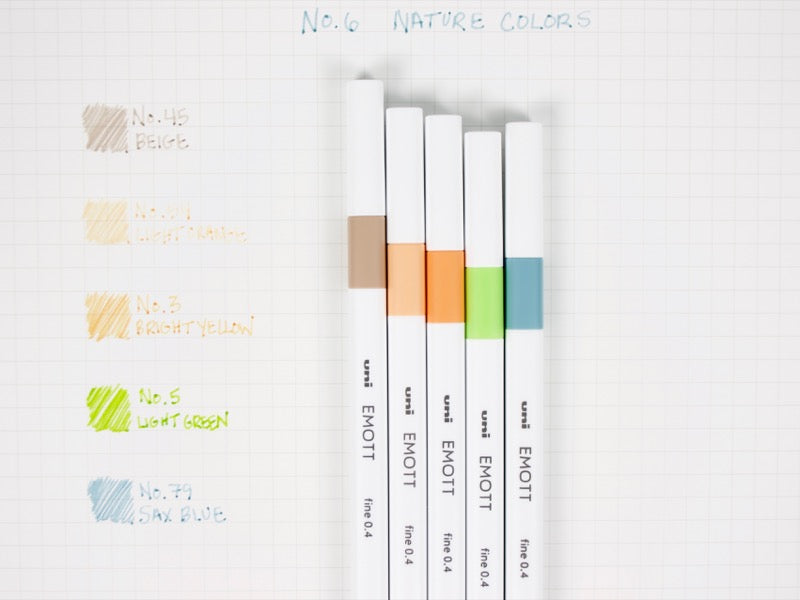 No.6 NATURE COLORS
No.45
BEIGE
No.54
LIGHT ORANGE
No.3
BRIGHT YELLOW
No.5
LIGHT GREEN
No.79
SAX BLUE
uni EMOTT fine 0.4
uni EMOTT fine 0.4
uni EMOTT fine 0.4
uni EMOTT fine 0.4
uni EMOTT fine 0.4